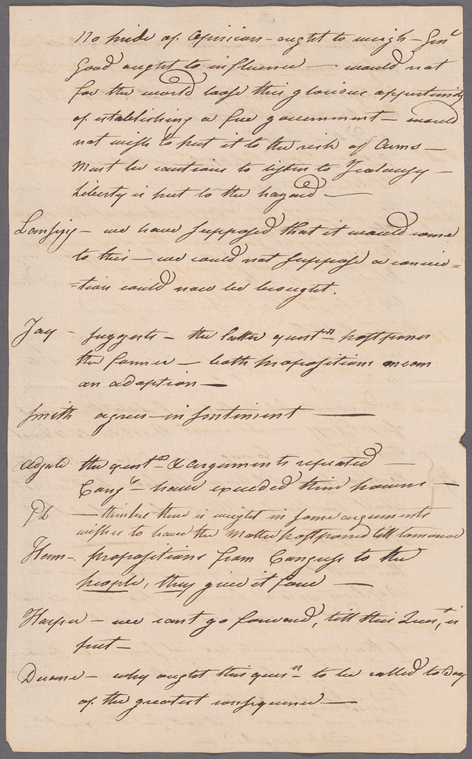 No pride of Opinion - ought to weigh - Gen.l
Good ought to influence - would not
for the world loose this glorious opportunity
of establishing a free government - would
not wish to put it to the risk of Arms -
Must be cautious to listen to Jealousy -
Liberty is put to the hazard -
Lansing - we have supposed that it would come
to this - we could not suppose a convic=
=tion could now be brought.
Jay - suggests - the latter quest.n postpones
the former - both propositions mean
an adoption -
Smith agrees in sentiment -
Adgate the quest.n & arguments repeated -
Cong.s - have exceeded their powers -
Pt - thinks there is weight in some arguments
wishes to have the Matter postponed till tomorrow
Ham - propositions from Congress to the
people, they gave it force -
Harper - we cant go forward, till this Ques.tn is
put -
Duane - why ought this ques.n to be called to Day
of the greatest consequence -